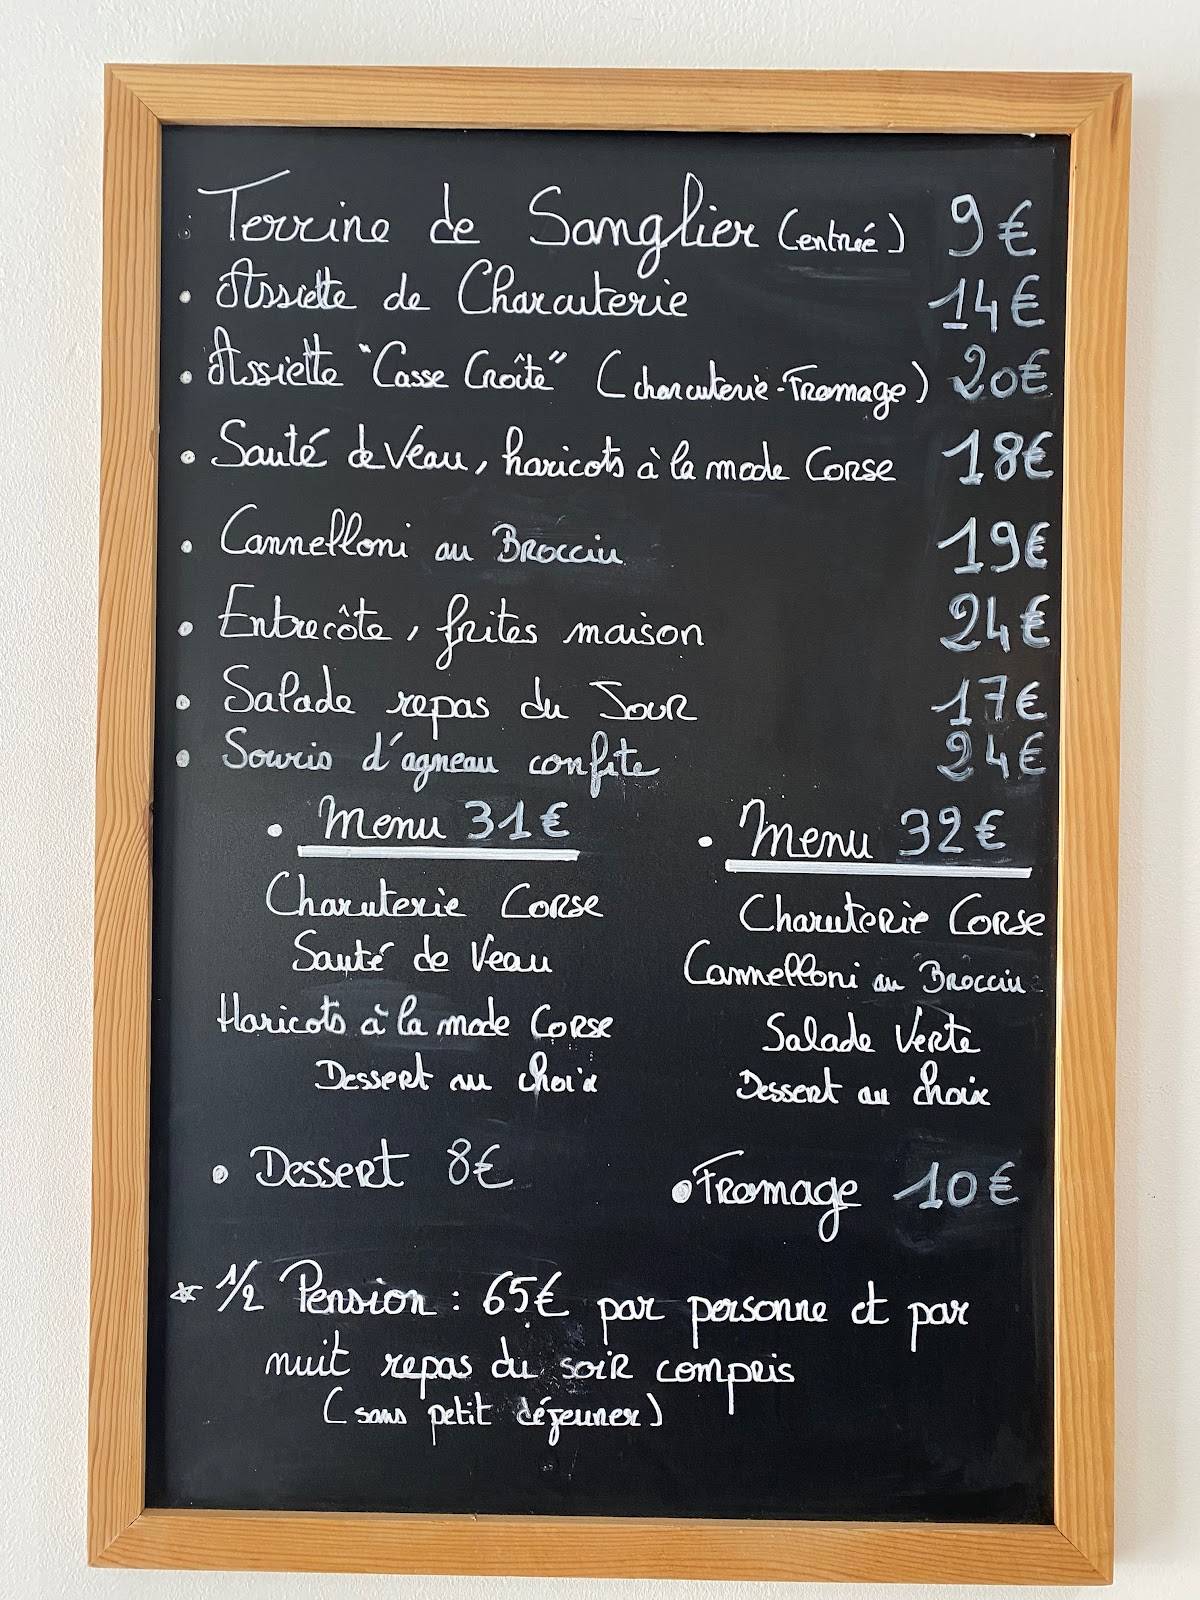 Terrine de Sanglier (entrée) 9€
• Assiette de Charcuterie 14€
• Assiette "Casse Croîte" (charcuterie-Fromage) 20€
• Sauté de Veau, haricots à la mode Corse 18€
• Cannelloni au Brocciu 19€
• Entrecôte, frites maison 24€
• Salade repas du Jour 17€
• Souris d'agneau confite 24€
• Menu 31€
Charcuterie Corse
Sauté de Veau
Haricots à la mode Corse
Dessert au choix
• Menu 32€
Charcuterie Corse
Cannelloni au Brocciu
Salade Verte
Dessert au choix
• Dessert 8€
• Fromage 10€
* 1/2 Pension : 65€ par personne et par
nuit repas du soir compris
(sans petit déjeuner)